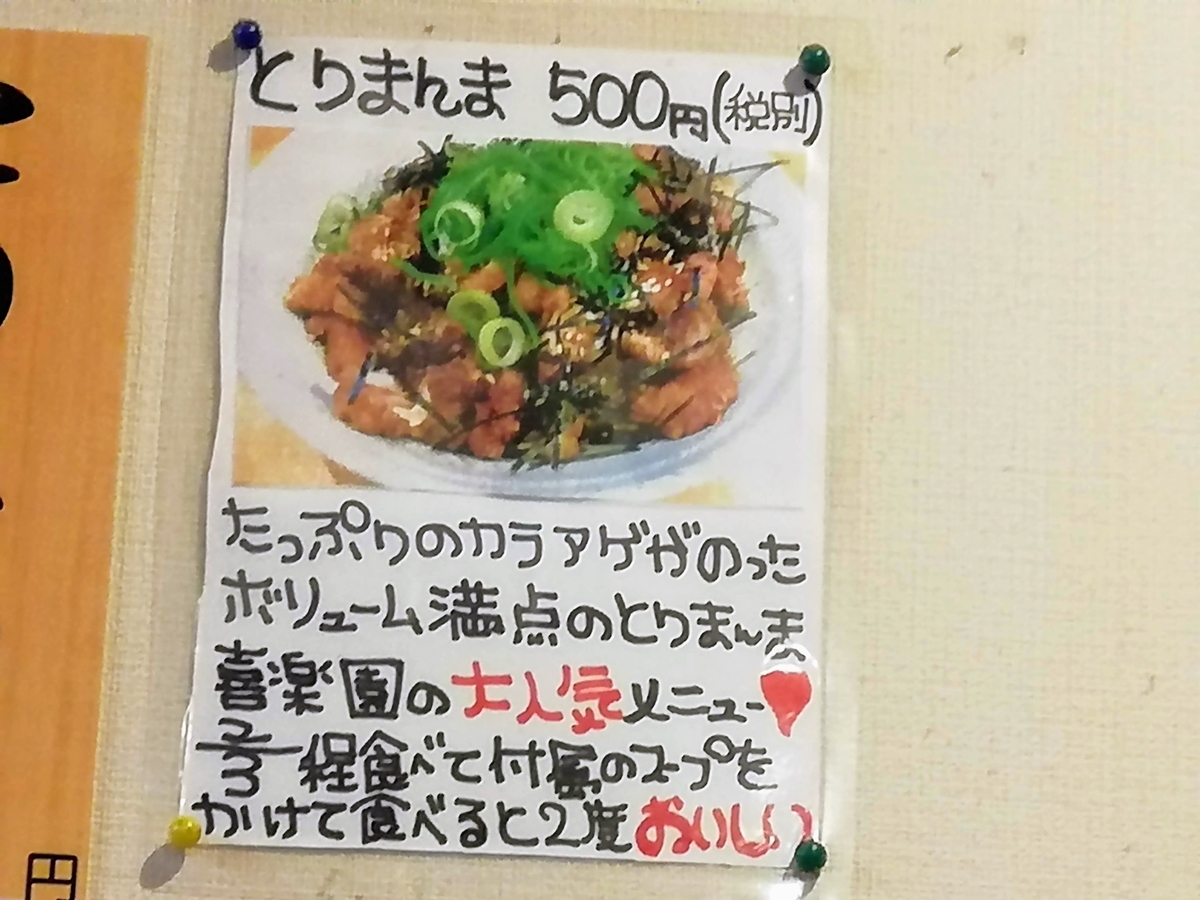 とりまんま 500円(税別)
たっぷりのカラアゲがのった
ボリューム満点のとりまんま
喜楽園の大人気メニュー♥
2/3程食べて付属のスープを
かけて食べると2度おいしい
円